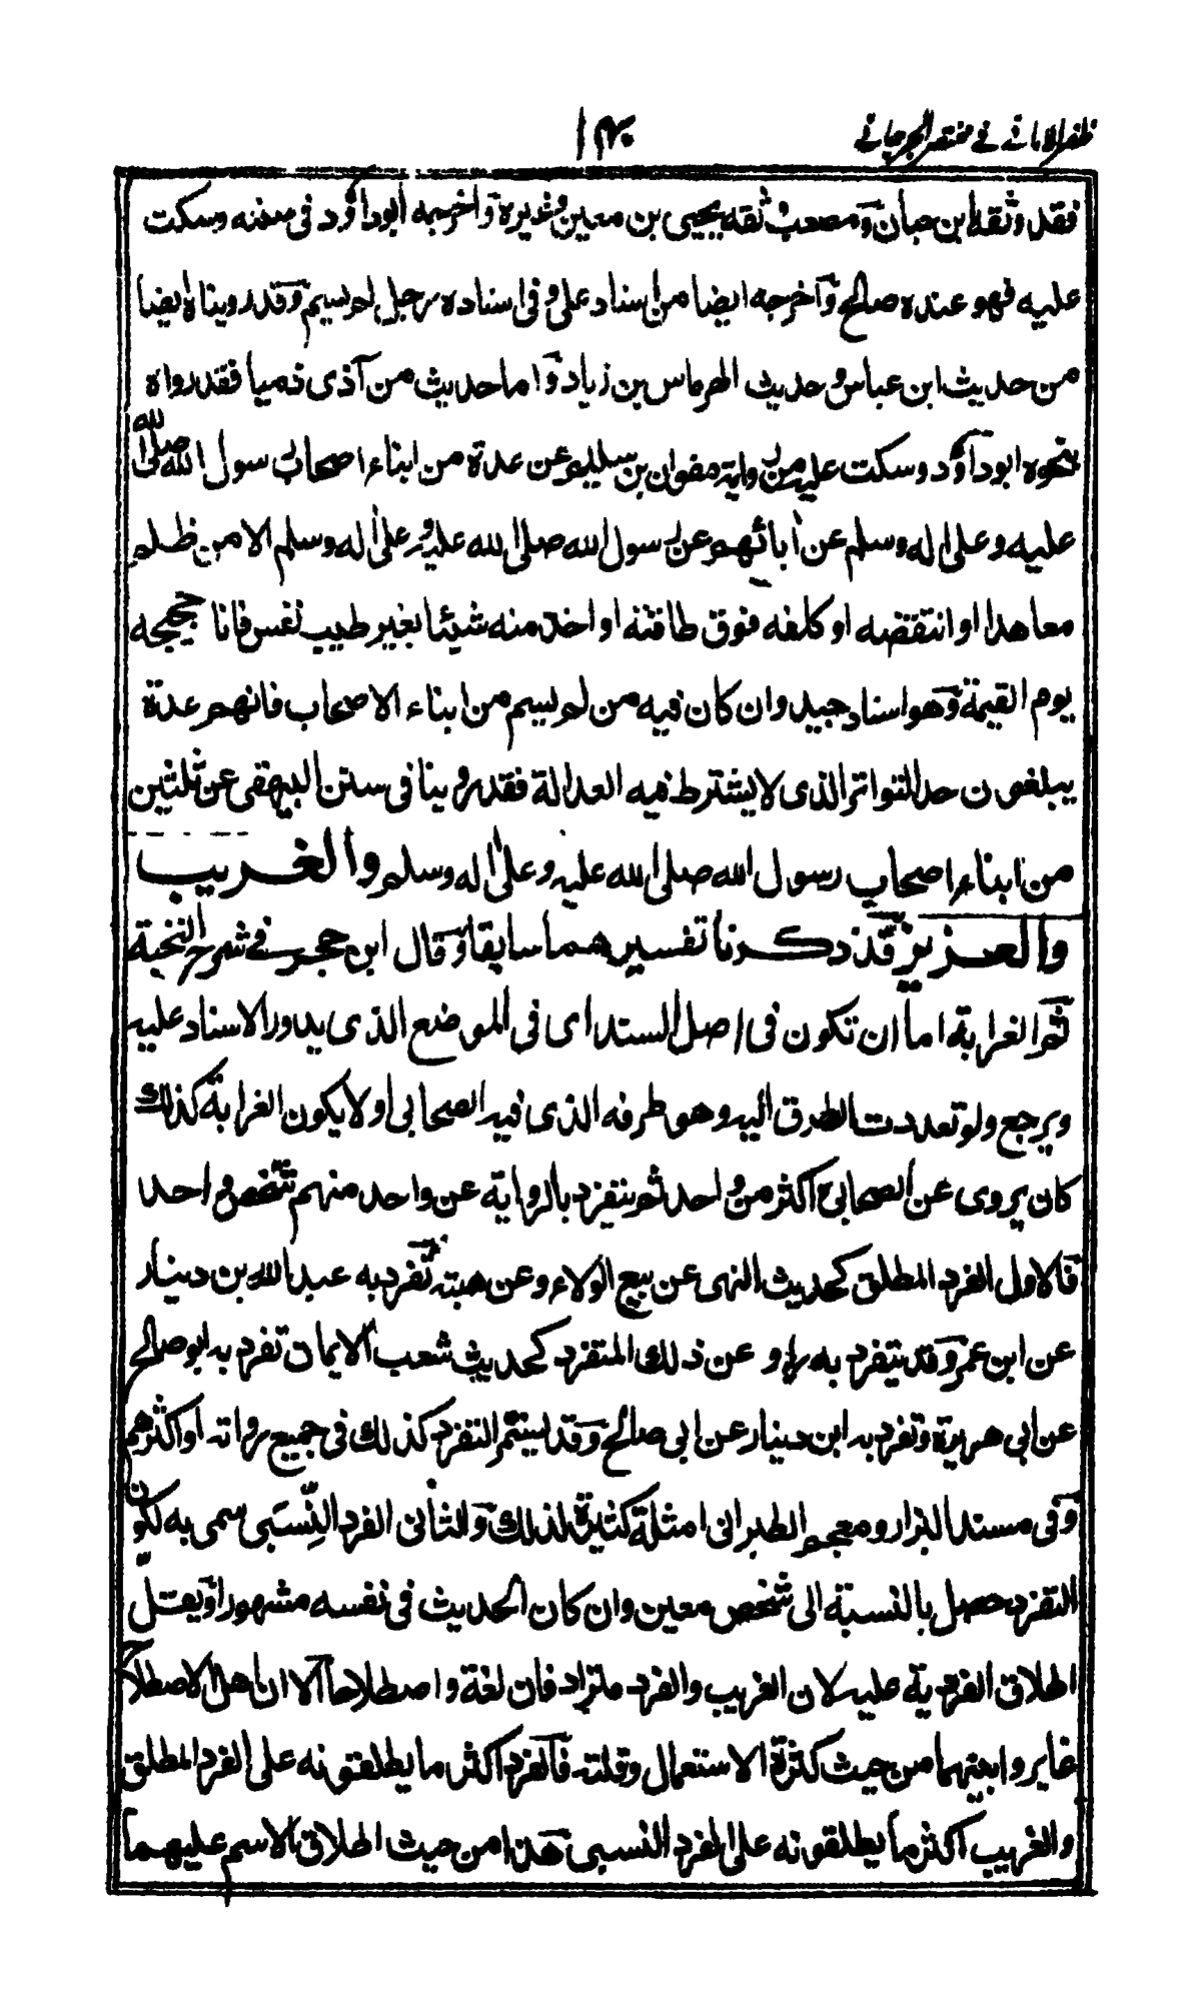 ظفر الامانى فى مختصر الجرجانى ١٤٠
فقد وثقه ابن حبان ومصعب وثقه يحيى بن معين وغيره واخرجه ابوداؤد فى سننه وسكت
عليه فهو عنده صالح واخرجه ايضا من اسناد على وفى اسناده رجل لم يسم وقد روينا ايضا
من حديث ابن عباس وحديث الهرماس بن زياد واما حديث من آذى ذميا فقد رواه
بنحوه ابوداؤد وسكت عليه من رواية صفوان بن سليم عن عدة من ابناء اصحاب رسول الله صلى الله
عليه وعلى اله وسلم عن ابائهم عن رسول الله صلى الله عليه وعلى اله وسلم الا من ظلم
معاهدا او انتقضه او كلفه فوق طاقته او اخذ منه شيئا بغير طيب نفس فانا حجيجه
يوم القيمة وهو اسناد جيد وان كان فيه من لم يسم من ابناء الاصحاب فانهم عدة
يبلغون حد التواتر الذى لا يشترط فيه العدالة فقد روينا فى سنن البيهقى عن ثلثين
من ابناء اصحاب رسول الله صلى الله عليه وعلى اله وسلم والغريب
والعزيز قد ذكرنا تفسيرهما سابقا وقال ابن حجر فى شرح النخبة
ثم الغرابة اما ان تكون فى اصل السند اى فى الموضع الذى يدور الاسناد عليه
ويرجع ولو تعددت الطرق اليه وهو طرفه الذى فيه الصحابى او لا يكون الغرابة كذلك
كان يروى عن الصحابى اكثر من واحد ثم ينفرد بالرواية عن واحد منهم شخص واحد
فالاول الفرد المطلق كحديث النهى عن بيع الولاء وعن هبته تفرد به عبد الله بن دينار
عن ابن عمر وقد يتفرد به راو عن ذلك المتفرد كحديث شعب الايمان تفرد به ابو صالح
عن ابى هريرة وتفرد به ابن دينار عن ابى صالح وقد يستمر التفرد كذلك فى جميع رواته او اكثرهم
وفى مسند البزار ومعجم الطبرانى امثلة كثيرة لذلك والثانى الفرد النسبى سمى به لكون
التفرد حصل بالنسبة الى شخص معين وان كان الحديث فى نفسه مشهورا ويقل
اطلاق الفردية عليه لان الغريب والفرد مترادفان لغة واصطلاحا الا ان اهل الاصطلاح
غايروا بينهما من حيث كثرة الاستعمال وقلته فالفرد اكثر ما يطلقونه على الفرد المطلق
والغريب اكثر ما يطلقونه على الفرد النسبى هذا من حيث اطلاق الاسم عليهما